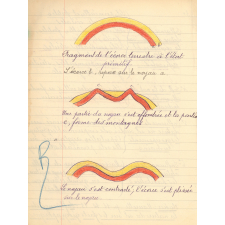 Fragment de l'écorce terrestre à l'état
primitif
L'écorce b, repose sur le noyau a
Une partie du noyau s'est effondrée et la partie
c, forme des montagnes
Le noyau s'est contracté, l'écorce s'est plissée
sur le noyau